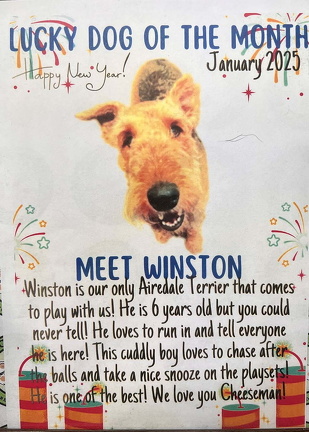 LUCKY DOG OF THE MONTH
January 2025
Happy New Year!
MEET WINSTON
Winston is our only Airedale Terrier that comes
to play with us! He is 6 years old but you could
never tell! He loves to run in and tell everyone
he is here! This cuddly boy loves to chase after
the balls and take a nice snooze on the playsets!
He is one of the best! We love you Cheeseman!